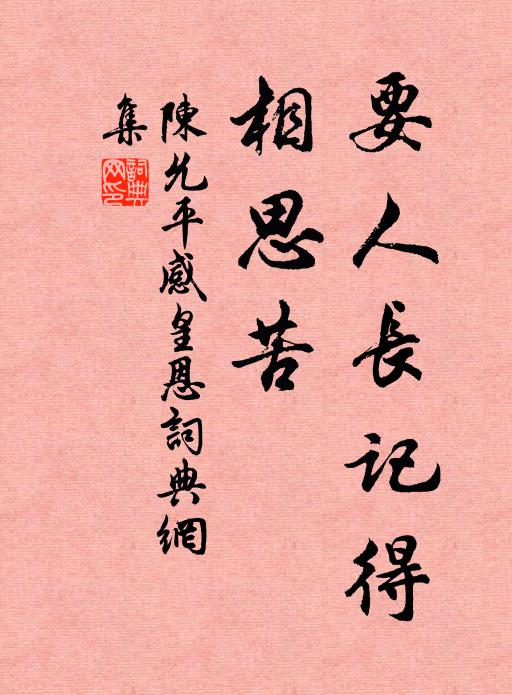 要人長記得
相思苦
陳允平感皇恩詞典網
集
詞典
網印